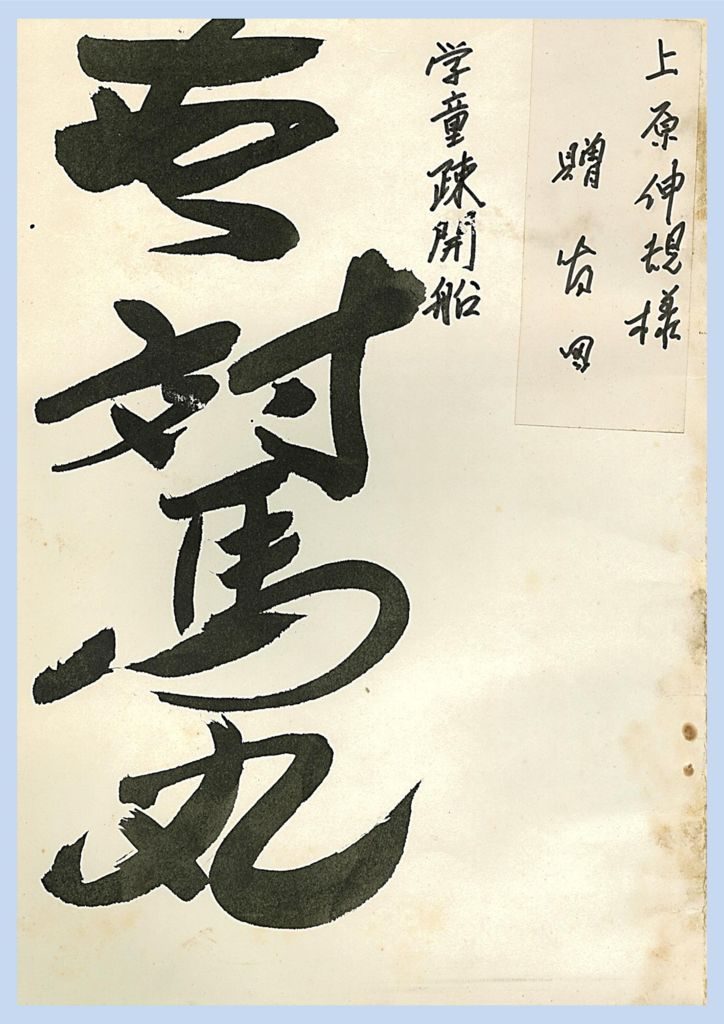 上原伸規様
贈
学童疎開船
対馬丸